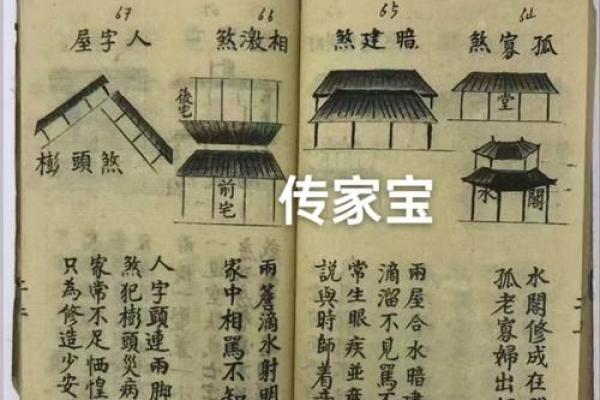 64
孤寡煞
堂
水閣
水閣修成在
孤老寡婦出
65
暗建煞
兩屋合水暗建
滴溜不見罵
常生眼疾並
說與時師着
66
相激煞
後宅
前宅
兩簷滴水射明
家中相罵不知
67
人字屋
頭煞
人字頭連兩脚
煞犯頭災病
家常不足恓惶
只為修造少安
传家宝